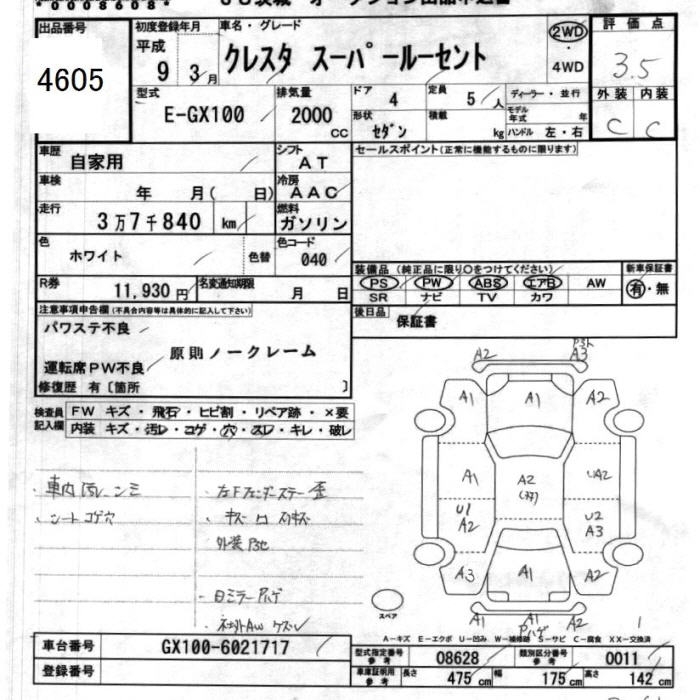 *0008608*
出品番号
4605
初度登録年月
平成
9年 3月
車名・グレード
クレスタ スーパールーセント
2WD
・
4WD
評価点
3.5
型式
E-GX100
排気量
2000
CC
ドア
4
定員
5人
ディーラー・並行
モデル年式 年
形状
セダン
積載
kg
ハンドル 左・右
外装 内装
C C
車歴
自家用
シフト
AT
セールスポイント(正常に機能するものに限ります)
車検
年 月( 日)
冷房
AAC
走行
3万7千840 km
燃料
ガソリン
色
ホワイト
色替
色コード
040
装備品(純正品に限り○をつけてください)
新車保証書
PS PW ABS エアB AW
SR ナビ TV カワ
有・無
R券
11,930円
名変通知期限
月 日
後日品
保証書
注意事項申告欄(不具合内容等は具体的に記入して下さい)
パワステ不良
原則ノークレーム
運転席PW不良
修復歴 有〔箇所 〕
検査員記入欄
FW キズ・飛石・ヒビ割・リペア跡・×要
内装 キズ・汚レ・コゲ・穴・スレ・キレ・破レ
・車内汚レ シミ
・シートコゲ穴
・左Fフェンダーステー歪
外装
A2 A3
A1 A1 A2
A1 A2 A2
U1 A2 U2 A3
A3 A1 A2
A2 A1 A2
スペア
A-キズ E-エクボ U-凹み W-補修跡 S-サビ C-腐食 XX-交換済
車台番号
GX100-6021717
型式指定番号
参考
08628
類別区分番号
参考
0011
登録番号
車庫証明用
参考
長さ 475cm 幅 175cm 高さ 142cm